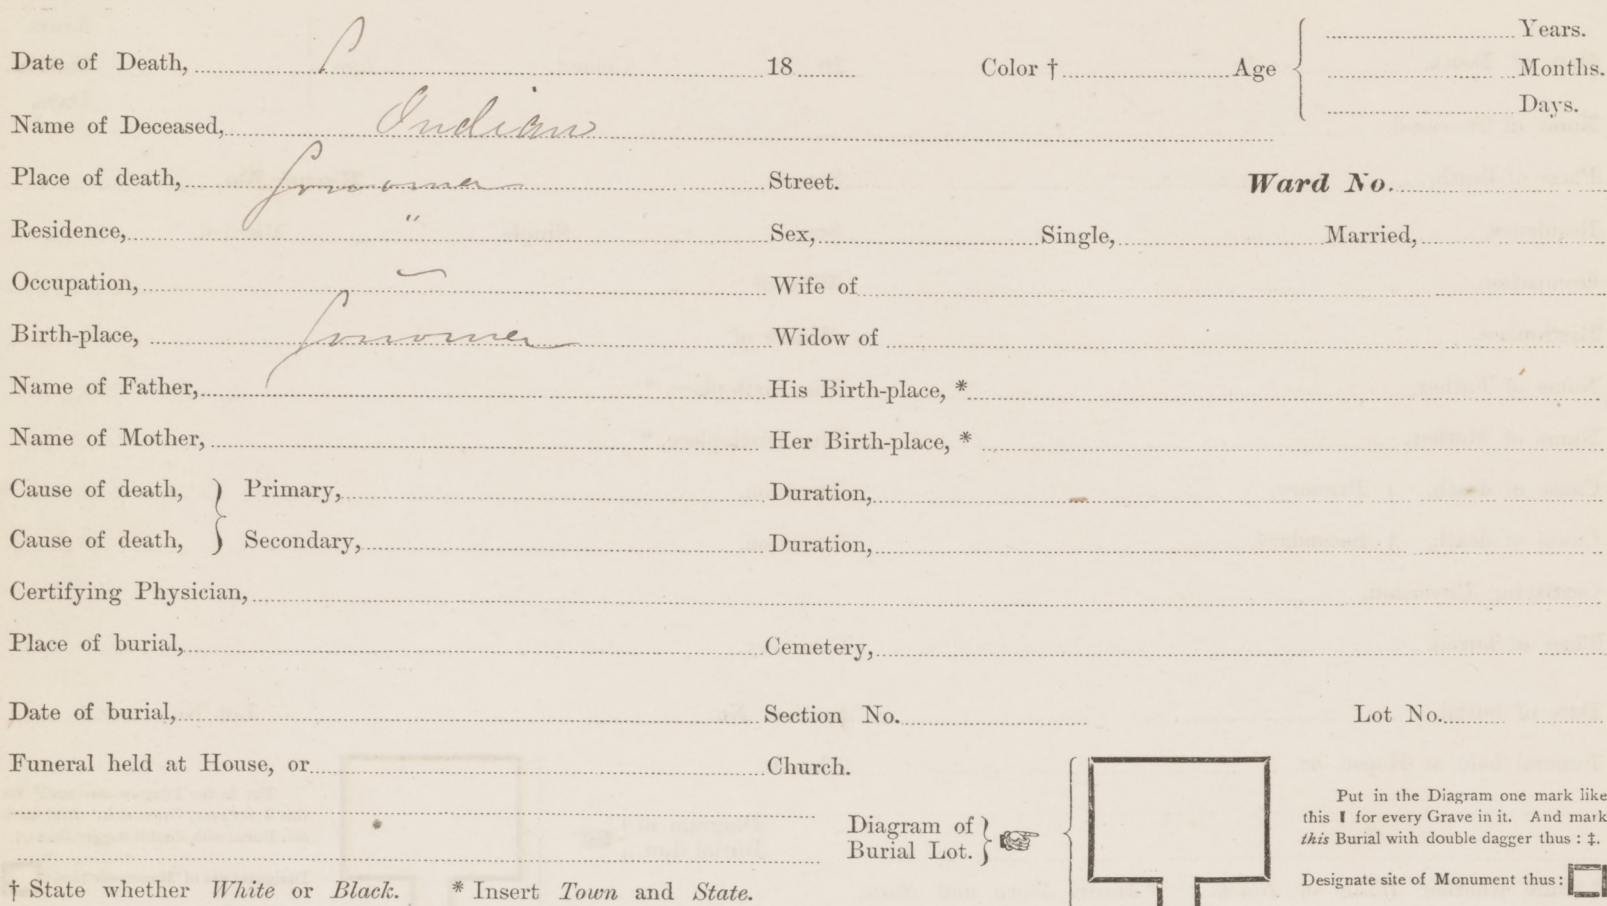 Date of Death, 18 Color † Age Years.
Months.
Days.
Name of Deceased, Indian
Place of death, Sonoma Street. Ward No.
Residence, " Sex, Single, Married,
Occupation, Wife of
Birth-place, Sonoma Widow of
Name of Father, His Birth-place, *
Name of Mother, Her Birth-place, *
Cause of death, } Primary, Duration,
Cause of death, } Secondary, Duration,
Certifying Physician,
Place of burial, Cemetery,
Date of burial, Section No. Lot No.
Funeral held at House, or Church.
Diagram of
Burial Lot. }
Put in the Diagram one mark like
this I for every Grave in it. And mark
this Burial with double dagger thus : ‡.
Designate site of Monument thus :
† State whether White or Black. * Insert Town and State.